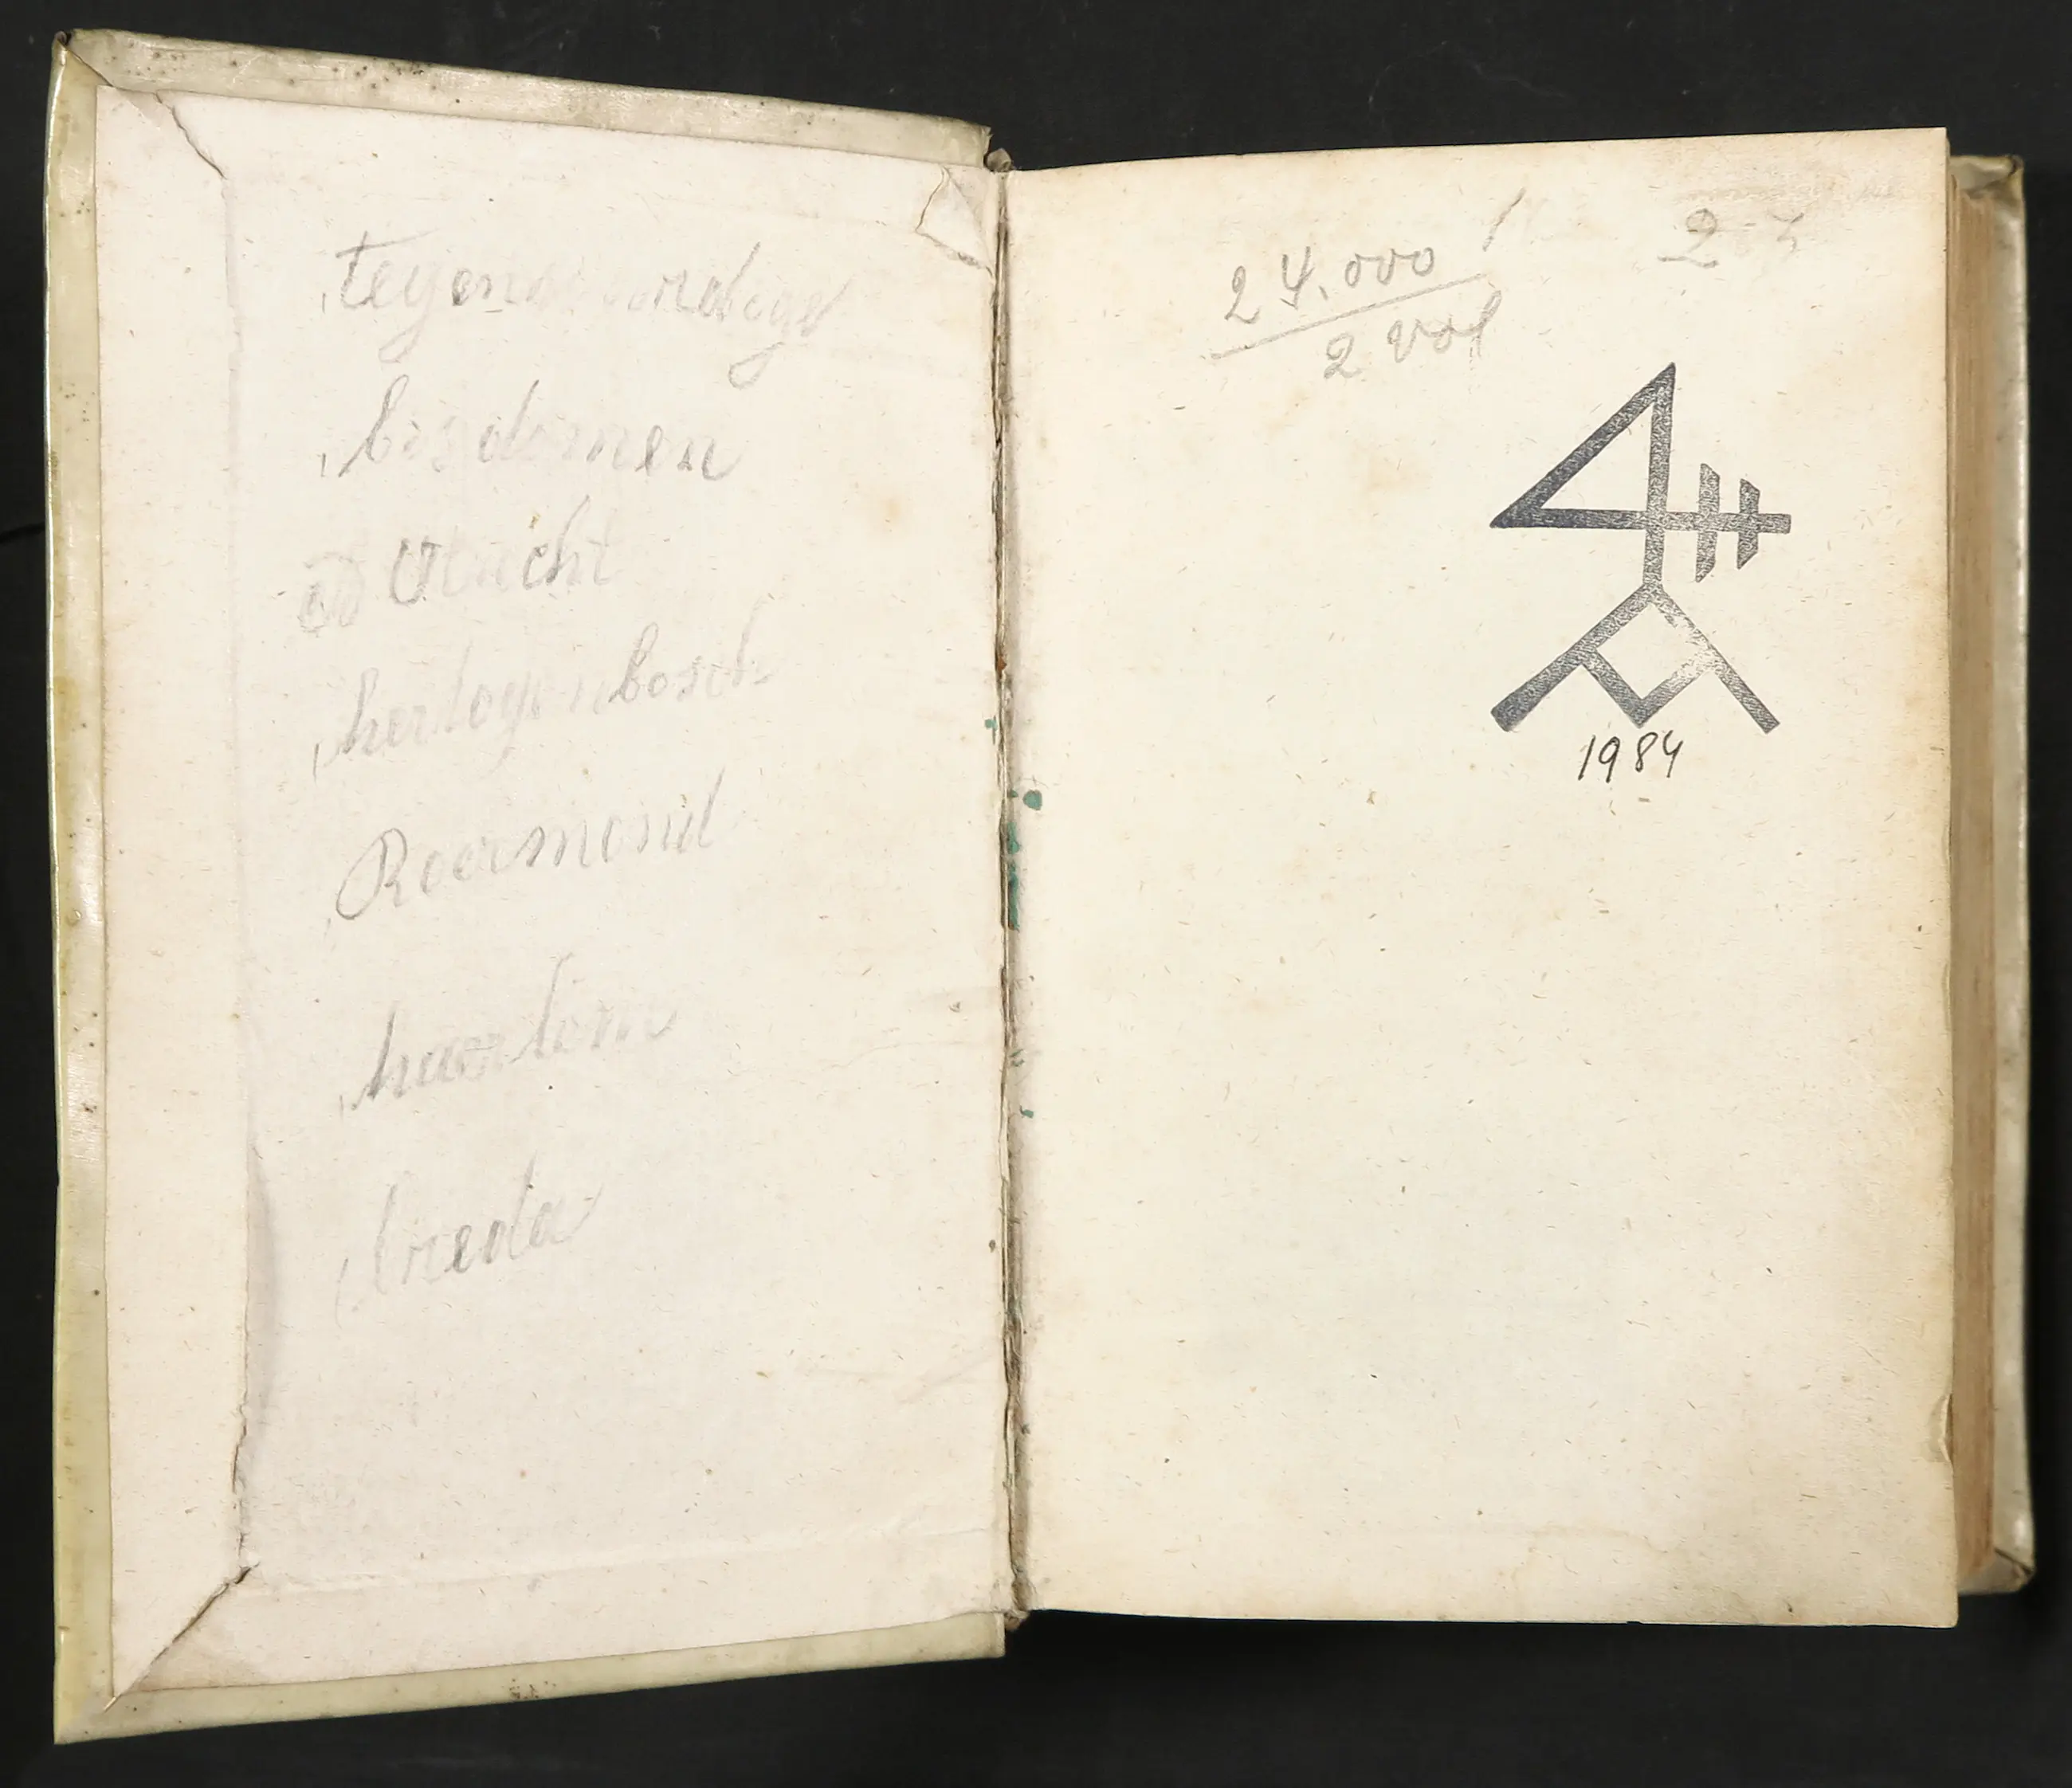 tegenwoordige
bisdomen
Utrecht
hertogenbosch
Roermond
haarlem
breda
24.000
2 vol
1984